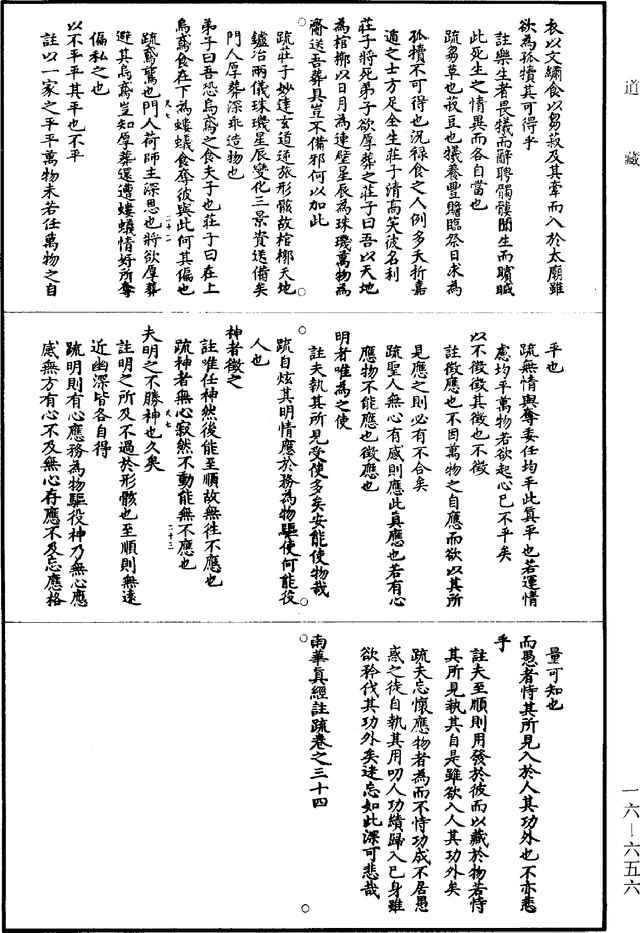 道藏
衣以文繡食以芻菽及其牽而入於太廟雖
欲為孤犢其可得乎
註樂生者畏犧而辭聘髑髏聞生而矉䫬
此死生之情異而各自當也
疏芻草也菽豆也犧養豐贍臨祭日求為
孤犢不可得也況祿食之人例多夭折嘉
遁之士方足全生莊子清高笑彼名利
莊子將死弟子欲厚葬之莊子曰吾以天地
為棺槨以日月為連璧星辰為珠璣萬物為
齎送吾葬具豈不備邪何以加此
疏莊子妙達玄道逆旅形骸故棺槨天地
鑪冶兩儀珠璣星辰變化三景資送備矣
門人厚葬深乖造物也
弟子曰吾恐烏鳶之食夫子也莊子曰在上
為烏鳶食在下為螻蟻食奪彼與此何其偏也
疏鳶鴟也門人荷師主深恩也將欲厚葬
避其烏鳶豈知厚葬還遭螻蟻情好所奪
偏私之也
以不平平其平也不平
註以一家之平平萬物未若任萬物之自
平也
疏無情與奪委任均平此真平也若運情
慮均平萬物若欲起心已不平矣
以不徵徵其徵也不徵
註徵應也不因萬物之自應而欲以其所
見應之則必有不合矣
疏聖人無心有感則應此真應也若有心
應物不能應也徵應也
明者唯為之使
註夫執其所見受使多矣安能使物哉
疏自炫其明情應於務為物驅使何能役
人也
神者徵之
註唯任神然後能至順故無往不應也
疏神者無心寂然不動能無不應也
夫明之不勝神也久矣
註明之所及不過於形骸也至順則無遠
近幽深皆各自得
疏明則有心應務為物驅役神乃無心應
感無方有心不及無心存應不及忘應格
量可知也
而愚者恃其所見入於人其功外也不亦悲
乎
註夫至順則用發於彼而以藏於物若恃
其所見執其自是雖欲入人其功外矣
疏夫忘懷應物者為而不恃功成不居愚
惑之徒自執其用叨人功績歸入己身雖
欲矜伐其功外矣迷忘如此深可悲哉
南華真經註疏卷之三十四
一六—六五六